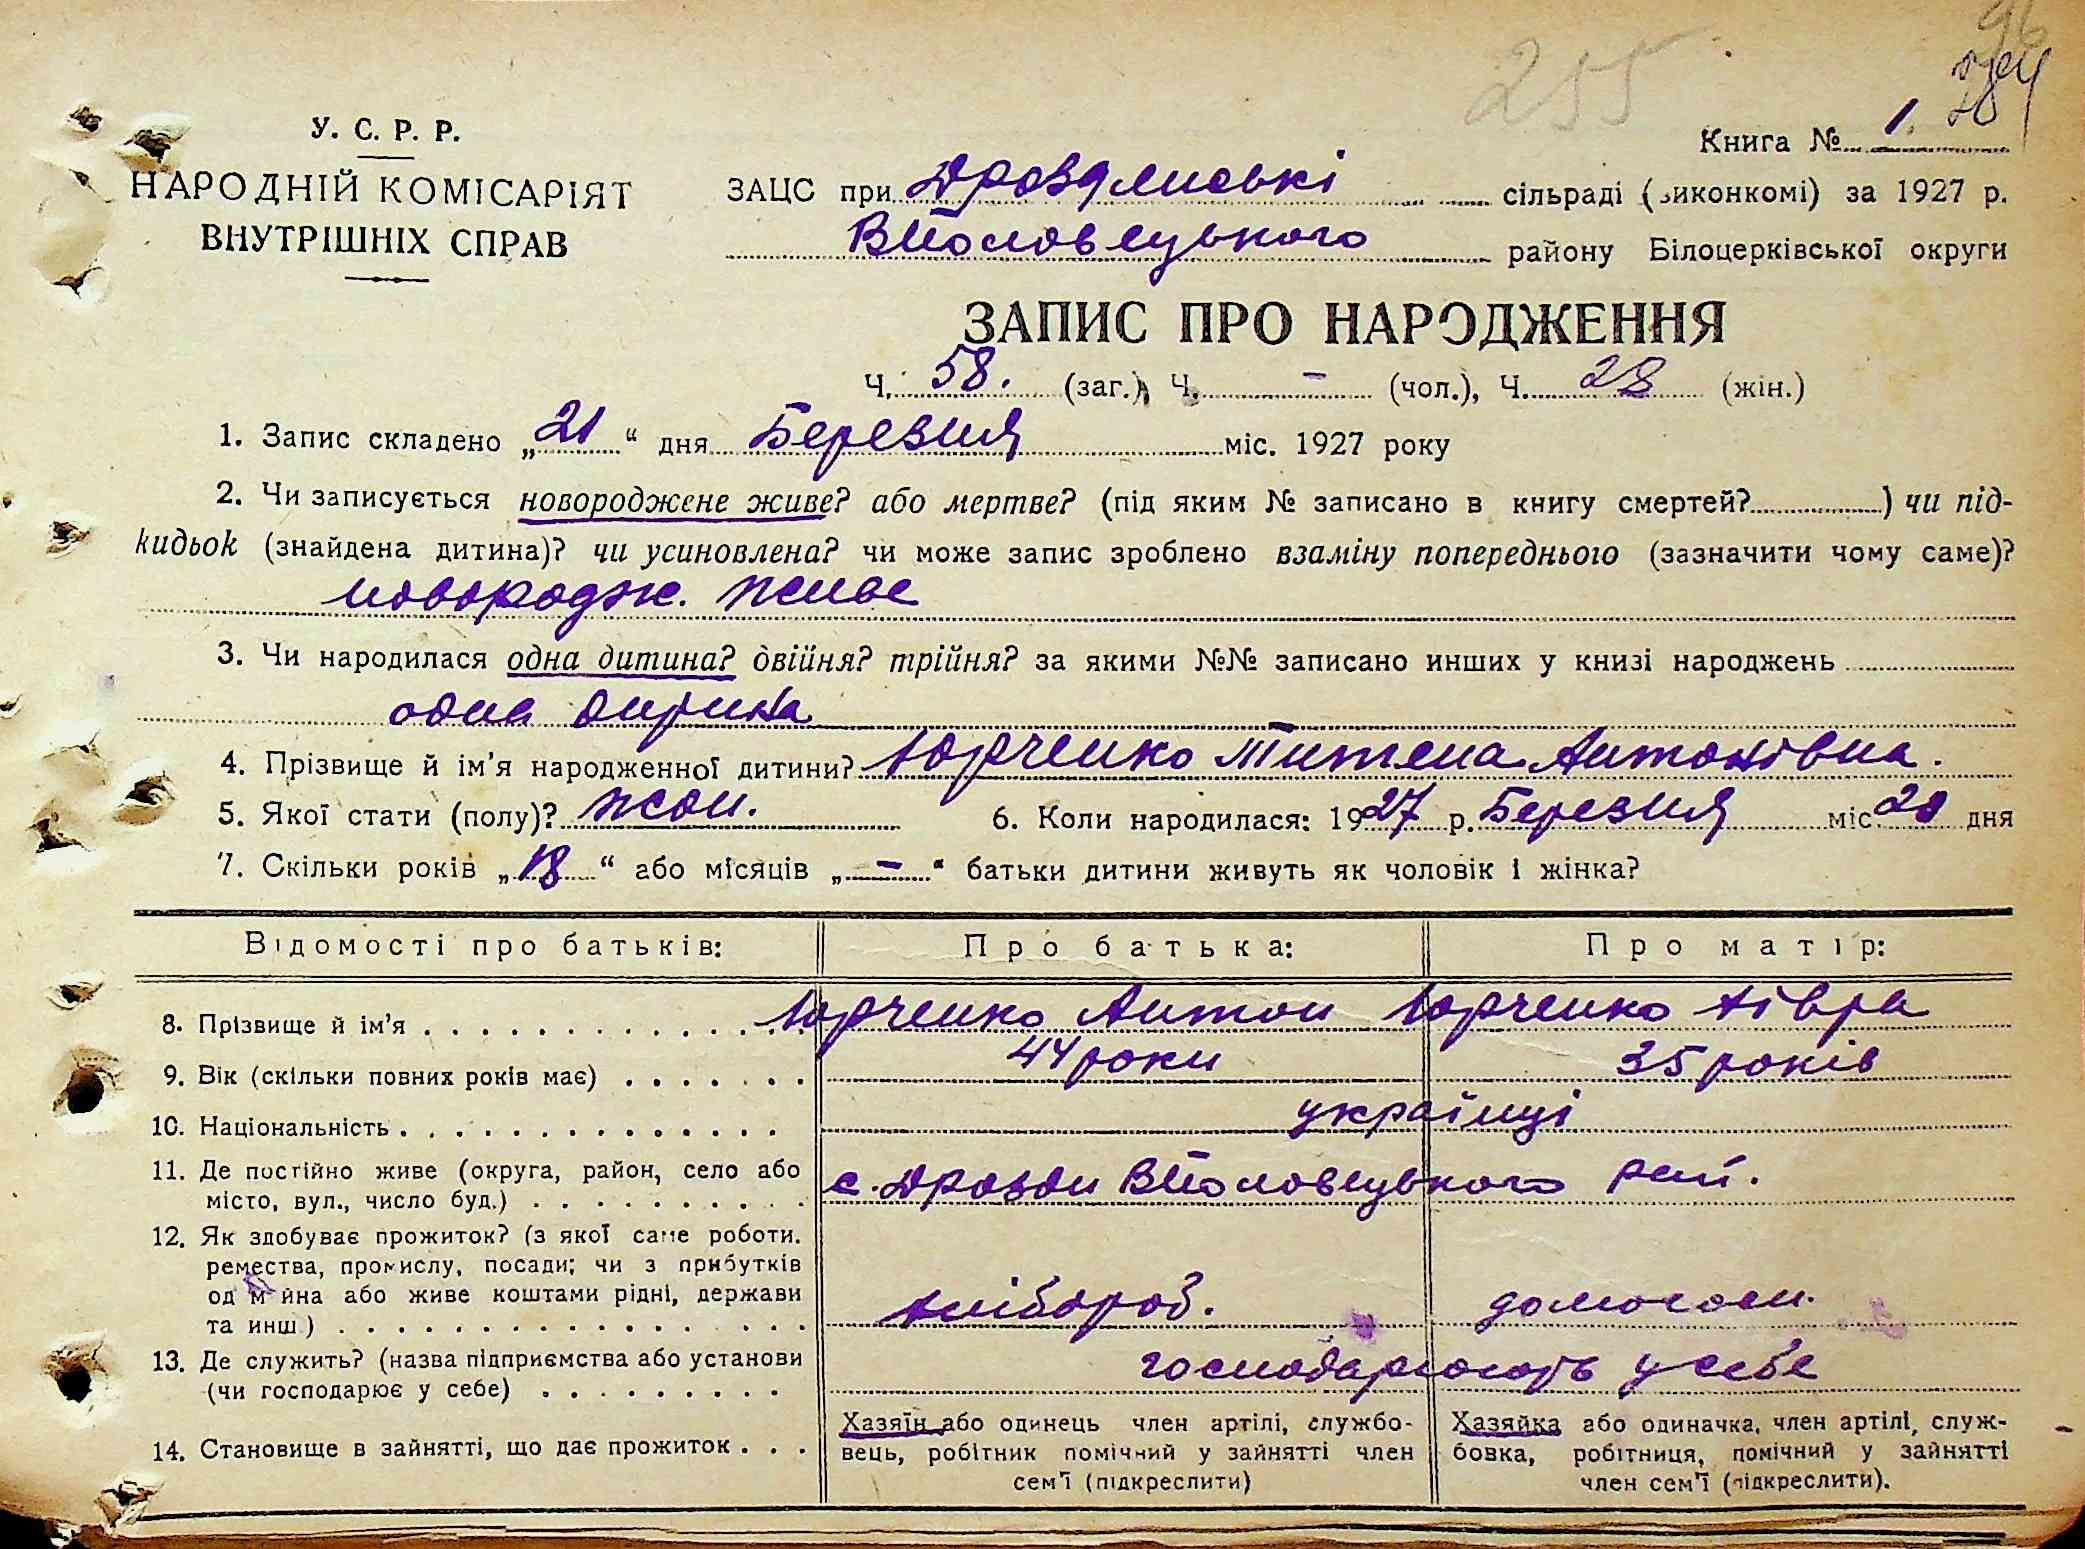 255
96
У. С. Р. Р.
Книга № 1.
НАРОДНІЙ КОМІСАРІЯТ
ВНУТРІШНІХ СПРАВ
ЗАЦС при Дроздянські сільраді (виконкомі) за 1927 р.
ВПоловецького району Білоцерківської округи
ЗАПИС ПРО НАРОДЖЕННЯ
Ч. 58. (заг.), Ч. – (чол.), Ч. 28 (жін.)
1. Запис складено „21“ дня Березня міс. 1927 року
2. Чи записується новороджене живе? або мертве? (під яким № записано в книгу смертей? ) чи під-
кидьок (знайдена дитина)? чи усиновлена? чи може запис зроблено взаміну попереднього (зазначити чому саме)?
новородж. живе
3. Чи народилася одна дитина? двійня? трійня? за якими №№ записано инших у книзі народжень
одна дитина
4. Прізвище й ім'я народженної дитини? Юрченко Титяна Антонівна.
5. Якої стати (полу)? жон. 6. Коли народилася: 1927 р. Березня міс 20 дня
7. Скільки років „18“ або місяців „–“ батьки дитини живуть як чоловік і жінка?
Відомості про батьків: Про батька: Про матір:
8. Прізвище й ім'я Юрченко Антон Юрченко Хівра
9. Вік (скільки повних років має) 44 роки 35 років
10. Національність українці
11. Де постійно живе (округа, район, село або
місто, вул., число буд.) с. Дрозди ВПоловецького рай.
12. Як здобуває прожиток? (з якої саме роботи.
ремества, промислу, посади; чи з прибутків
од майна або живе коштами рідні, держави
та инш.) хлібороб. домогосп.
13. Де служить? (назва підприємства або установи
(чи господарює у себе) господарюють у себе
14. Становище в зайнятті, що дає прожиток
Хазяїн або одинець член артілі, службо-
вець, робітник помічний у зайнятті член
сем'ї (підкреслити)
Хазяйка або одиначка, член артілі, служ-
бовка, робітниця, помічний у зайнятті
член сем'ї (підкреслити).